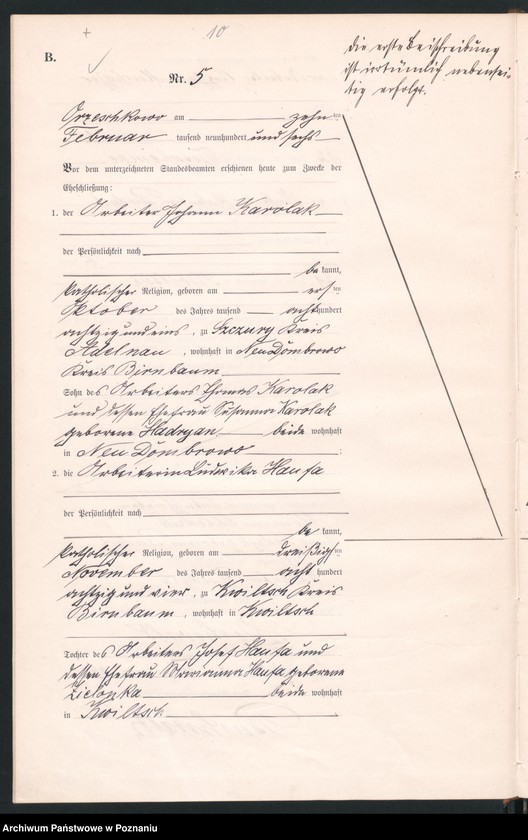 10
B.
die erste Beischreibung
ist irrtümlich nebensei-
tig erfolgt.
Nr. 5
Orzeschkowo am zehnten
Februar tausend neunhundert und sechs
Vor dem unterzeichneten Standesbeamten erschienen heute zum Zwecke der
Eheschließung:
1. der Arbeiter Johann Karolak
der Persönlichkeit nach
bekannt,
katholischer Religion, geboren am ersten
Oktober des Jahres tausend achthundert
achtzig und eins, zu Szczury Kreis
Adelnau, wohnhaft in Neu Dombrowo
Kreis Birnbaum
Sohn des Arbeiters Thomas Karolak
und dessen Ehefrau Susanna Karolak
geborene Hadryan beide wohnhaft
in Neu Dombrowo :
2. die Arbeiterin Ludwika
der Persönlichkeit nach
bekannt,
katholischer Religion, geboren am dreißigsten
November des Jahres tausend acht hundert
achtzig und vier, zu Kwiltsch Kreis
Birnbaum, wohnhaft in Kwiltsch
Tochter des Arbeiters Josef und
dessen Ehefrau Marianna geborene
beide wohnhaft
in Kwiltsch
Archiwum Państwowe w Poznaniu